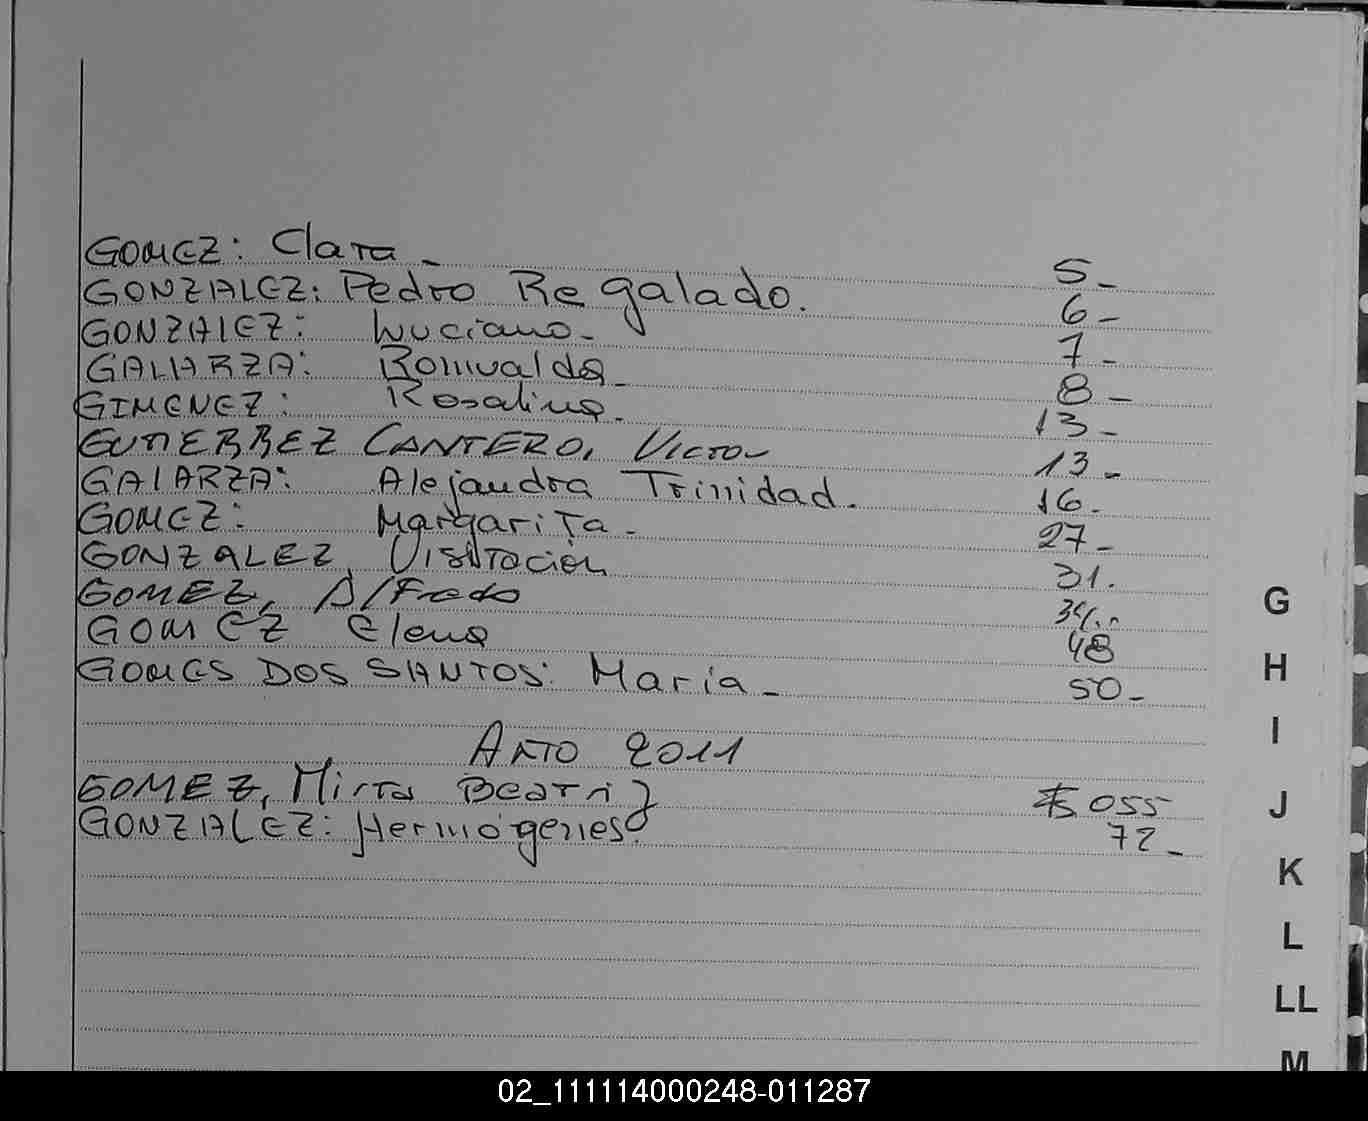 GOMEZ: Clara - 5-
GONZALEZ: Pedro Regalado. 6-
GONZALEZ: Luciano- 7-
GALARZA: Romualda- 8-
GIMENEZ: Rosalina- 13-
GUTIERREZ CANTERO, Victor 13-
GALARZA: Alejandra Trinidad. 16-
GOMEZ: Margarita- 27-
GONZALEZ, Visitación 31.
GOMEZ, Alfredo 34
GOMEZ Elena 48
GOMES DOS SANTOS: María- 50-
Año 2011
GOMEZ, Mirta Beatriz 055
GONZALEZ: Hermógenes. 72-
G
H
I
J
K
L
LL
M
02_111114000248-011287